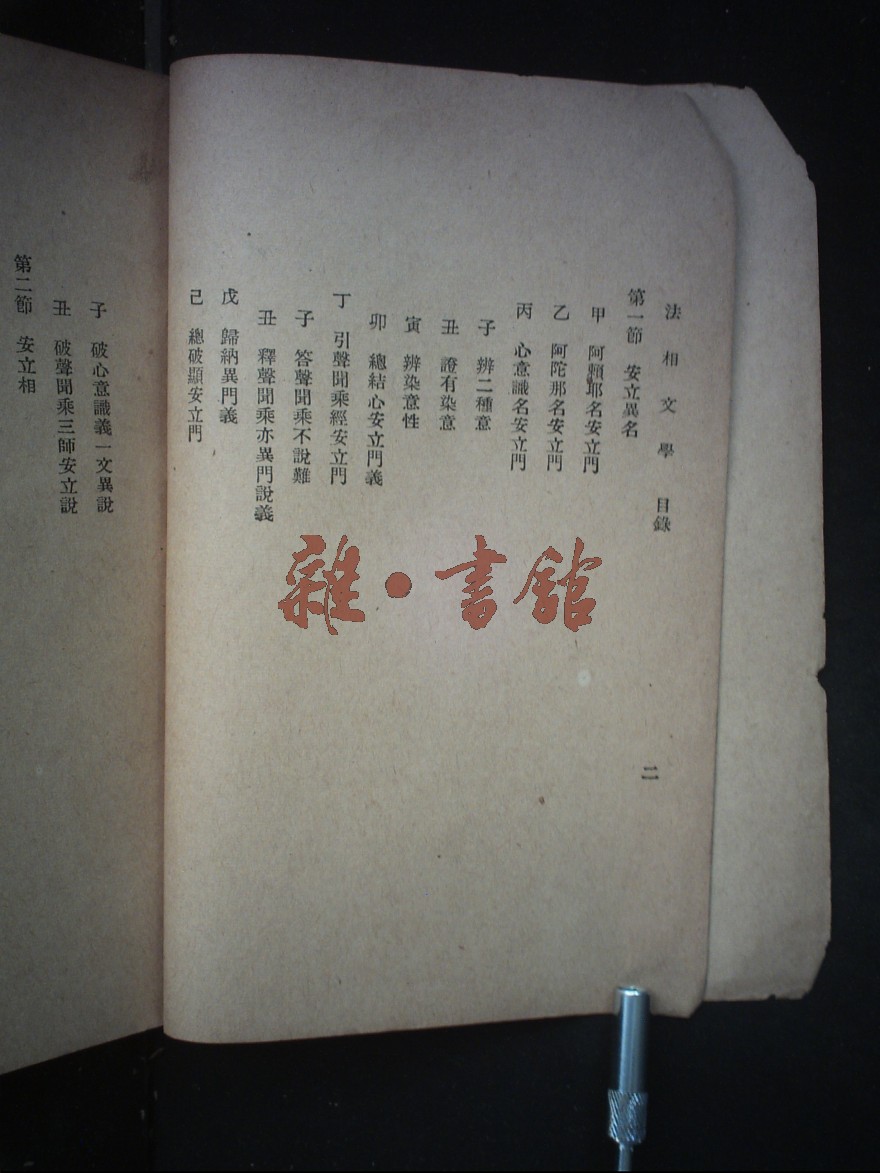 法相文學 目錄
第一節 安立異名
甲 阿賴耶名安立門
乙 阿陀那名安立門
丙 心意識名安立門
子 辨二種意
丑 證有染意
寅 辨染意性
卯 總結心安立門義
丁 引聲聞乘經安立門
子 答聲聞乘不說難
丑 釋聲聞乘亦異門說義
戊 歸納異門義
己 總破顯安立門
二
子 破心意識義一文異說
丑 破聲聞乘三師安立說
第二節 安立相
雜·書館